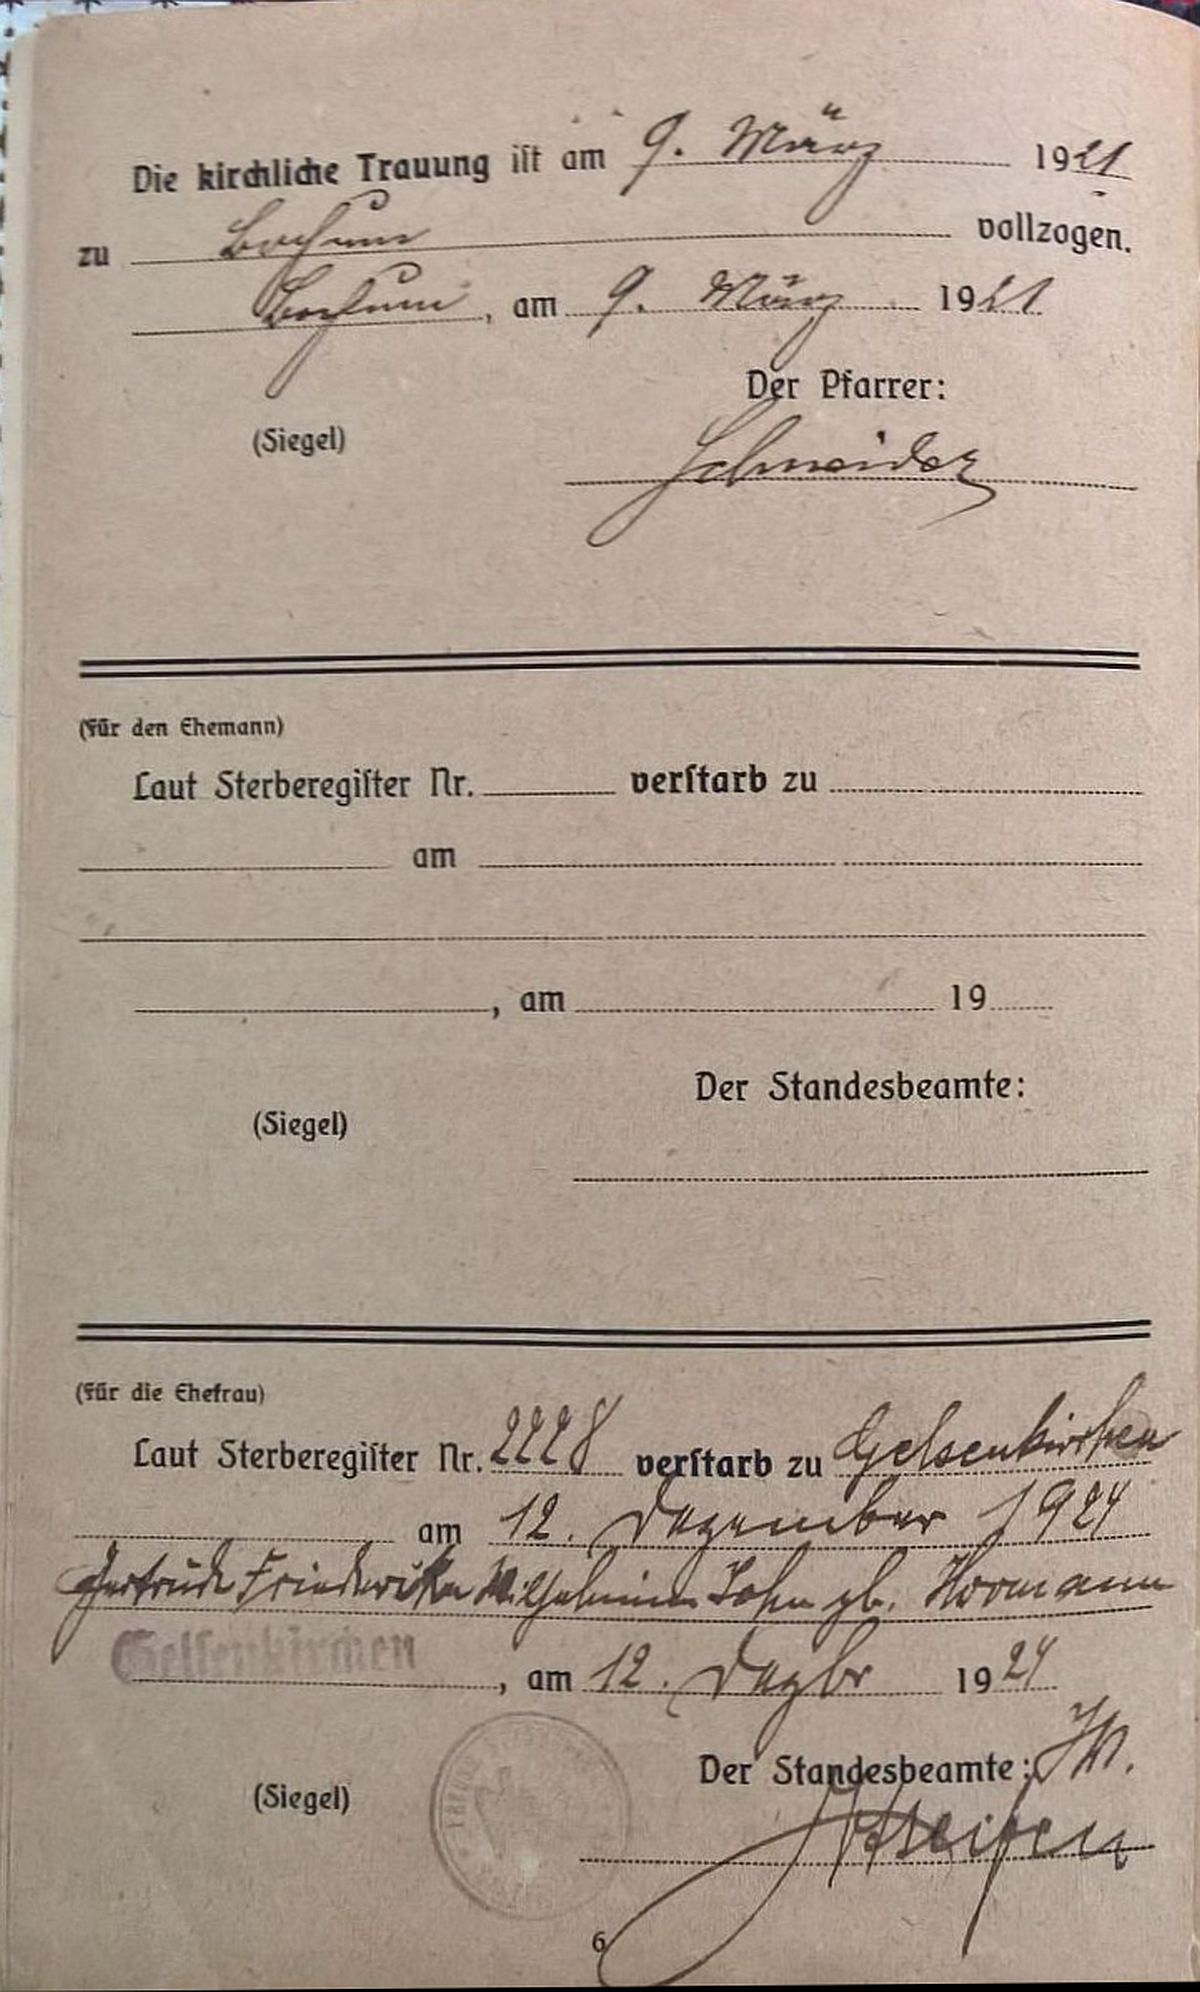 Die kirchliche Trauung ist am 9. März 1921
zu Bochum vollzogen.
Bochum, am 9. März 1921
Der Pfarrer:
(Siegel)
Schneider
(Für den Ehemann)
Laut Sterberegister Nr. verstarb zu
am
, am 19
Der Standesbeamte:
(Siegel)
(Für die Ehefrau)
Laut Sterberegister Nr. 2228 verstarb zu Gelsenkirchen
am 12. Dezember 1924
Gertrude Friederike Wilhelmine gb. Hormann
Gelsenkirchen, am 12. Dezbr 1924
Der Standesbeamte: J.V.
(Siegel)
6